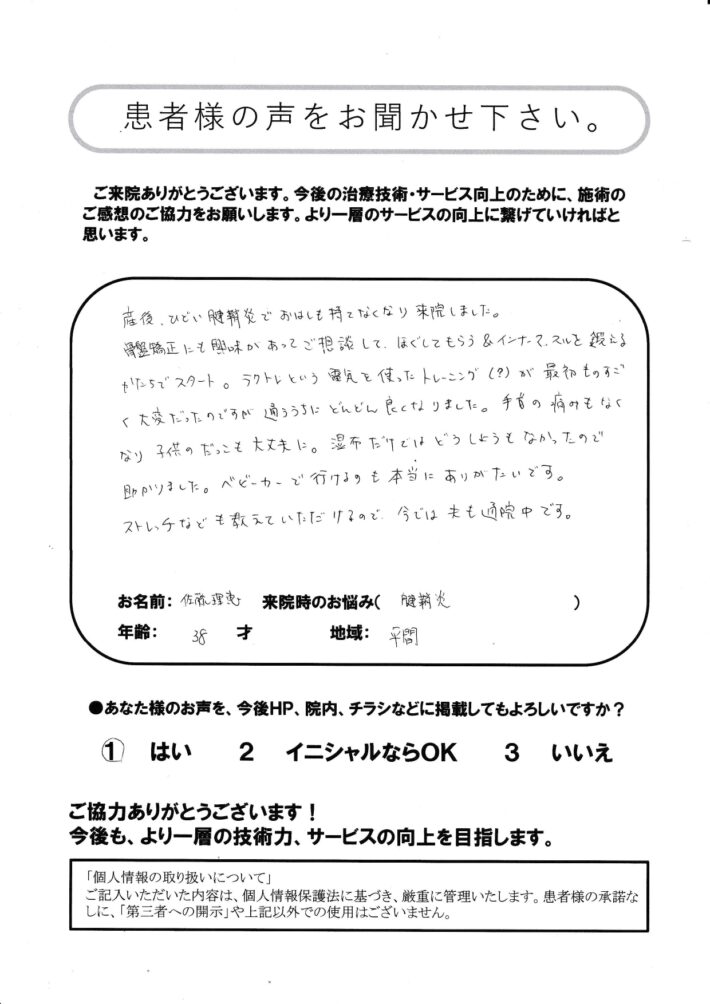 患者様の声をお聞かせ下さい。
ご来院ありがとうございます。今後の治療技術・サービス向上のために、施術の
ご感想のご協力をお願いします。より一層のサービスの向上に繋げていければと
思います。
産後、ひどい腱鞘炎でおはしも持てなくなり来院しました。
骨盤矯正にも興味があってご相談して、ほぐしてもらう&インナーマッスルを鍛える
かたちでスタート。ラクトレという電気を使ったトレーニング(?)が最初ものすご
く大変だったのですが通ううちにどんどん良くなりました。手首の痛みもなく
なり子供のだっこも大丈夫に。湿布だけではどうしようもなかったので
助かりました。ベビーカーで行けるのも本当にありがたいです。
ストレッチなども教えていただけるので、今では夫も通院中です。
お名前: 佐藤理恵 来院時のお悩み( 腱鞘炎 )
年齢: 38 才 地域: 平間
●あなた様のお声を、今後HP、院内、チラシなどに掲載してもよろしいですか？
① はい 2 イニシャルならOK 3 いいえ
ご協力ありがとうございます！
今後も、より一層の技術力、サービスの向上を目指します。
「個人情報の取り扱いについて」
ご記入いただいた内容は、個人情報保護法に基づき、厳重に管理いたします。患者様の承諾な
しに、「第三者への開示」や上記以外での使用はございません。